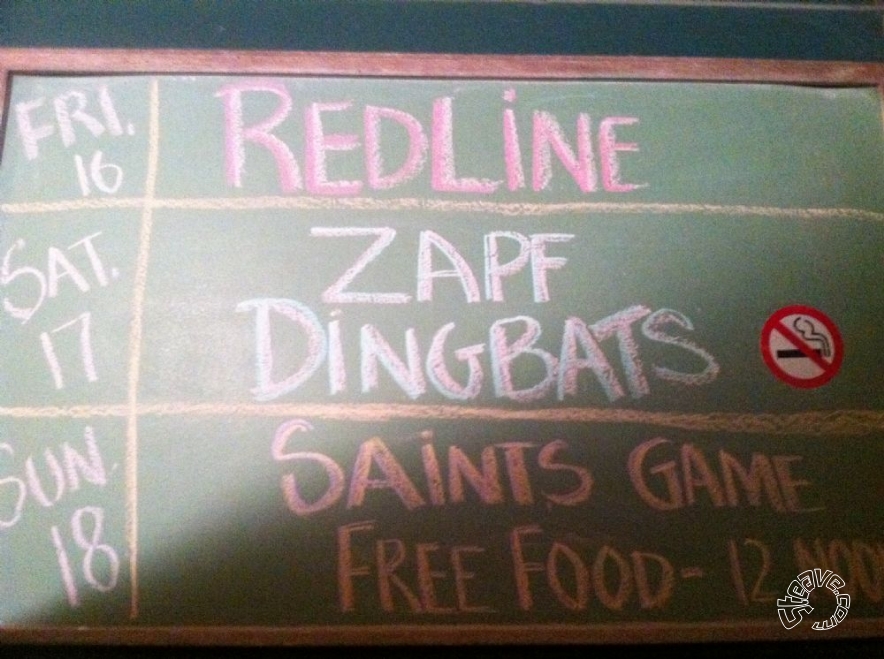 FRI. REDLiNE
16
SAT. ZAPF
17 DiNGBATS
SUN. SAiNTS GAME
18 FREE FOOD - 12 NOON
steave.com